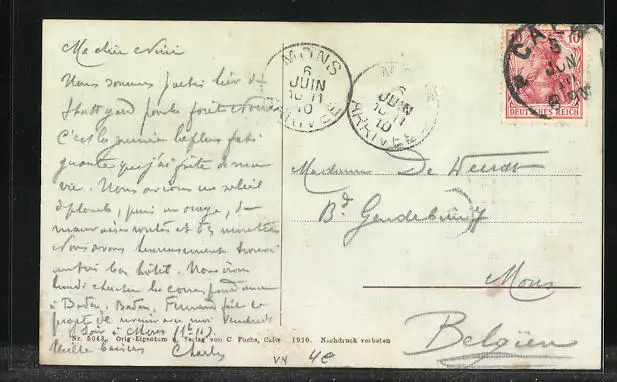 Ma chère Nini
Nous sommes partis hier de
Stuttgard pour la forêt noire
C'est la journée la plus fati
guante que j'ai faite de ma
vie. Nous avions un soleil
de plomb, puis un orage, de
mauvaises routes et des montées
Nous avons heureusement trouvé
un très bon hôtel. Nous irons
lundi chercher la correspondance
à Baden-Baden. Fernand fait le
projet de revenir avec moi Vendredi
soir à Mons
Mille baisers Charles
MONS
6
JUIN
10-11
10
ARRIVEE
MONS
6
JUIN
10-11
10
ARRIVEE
CALW
5
JUN
10
DEUTSCHES REICH
Madame De Weerdt
Bd. Gendebien 7
Mons
Belgien
Nr. 5048. Orig-Eigentum u. Verlag von C Fuchs, Calw 1910. Nachdruck verboten
VN 4E